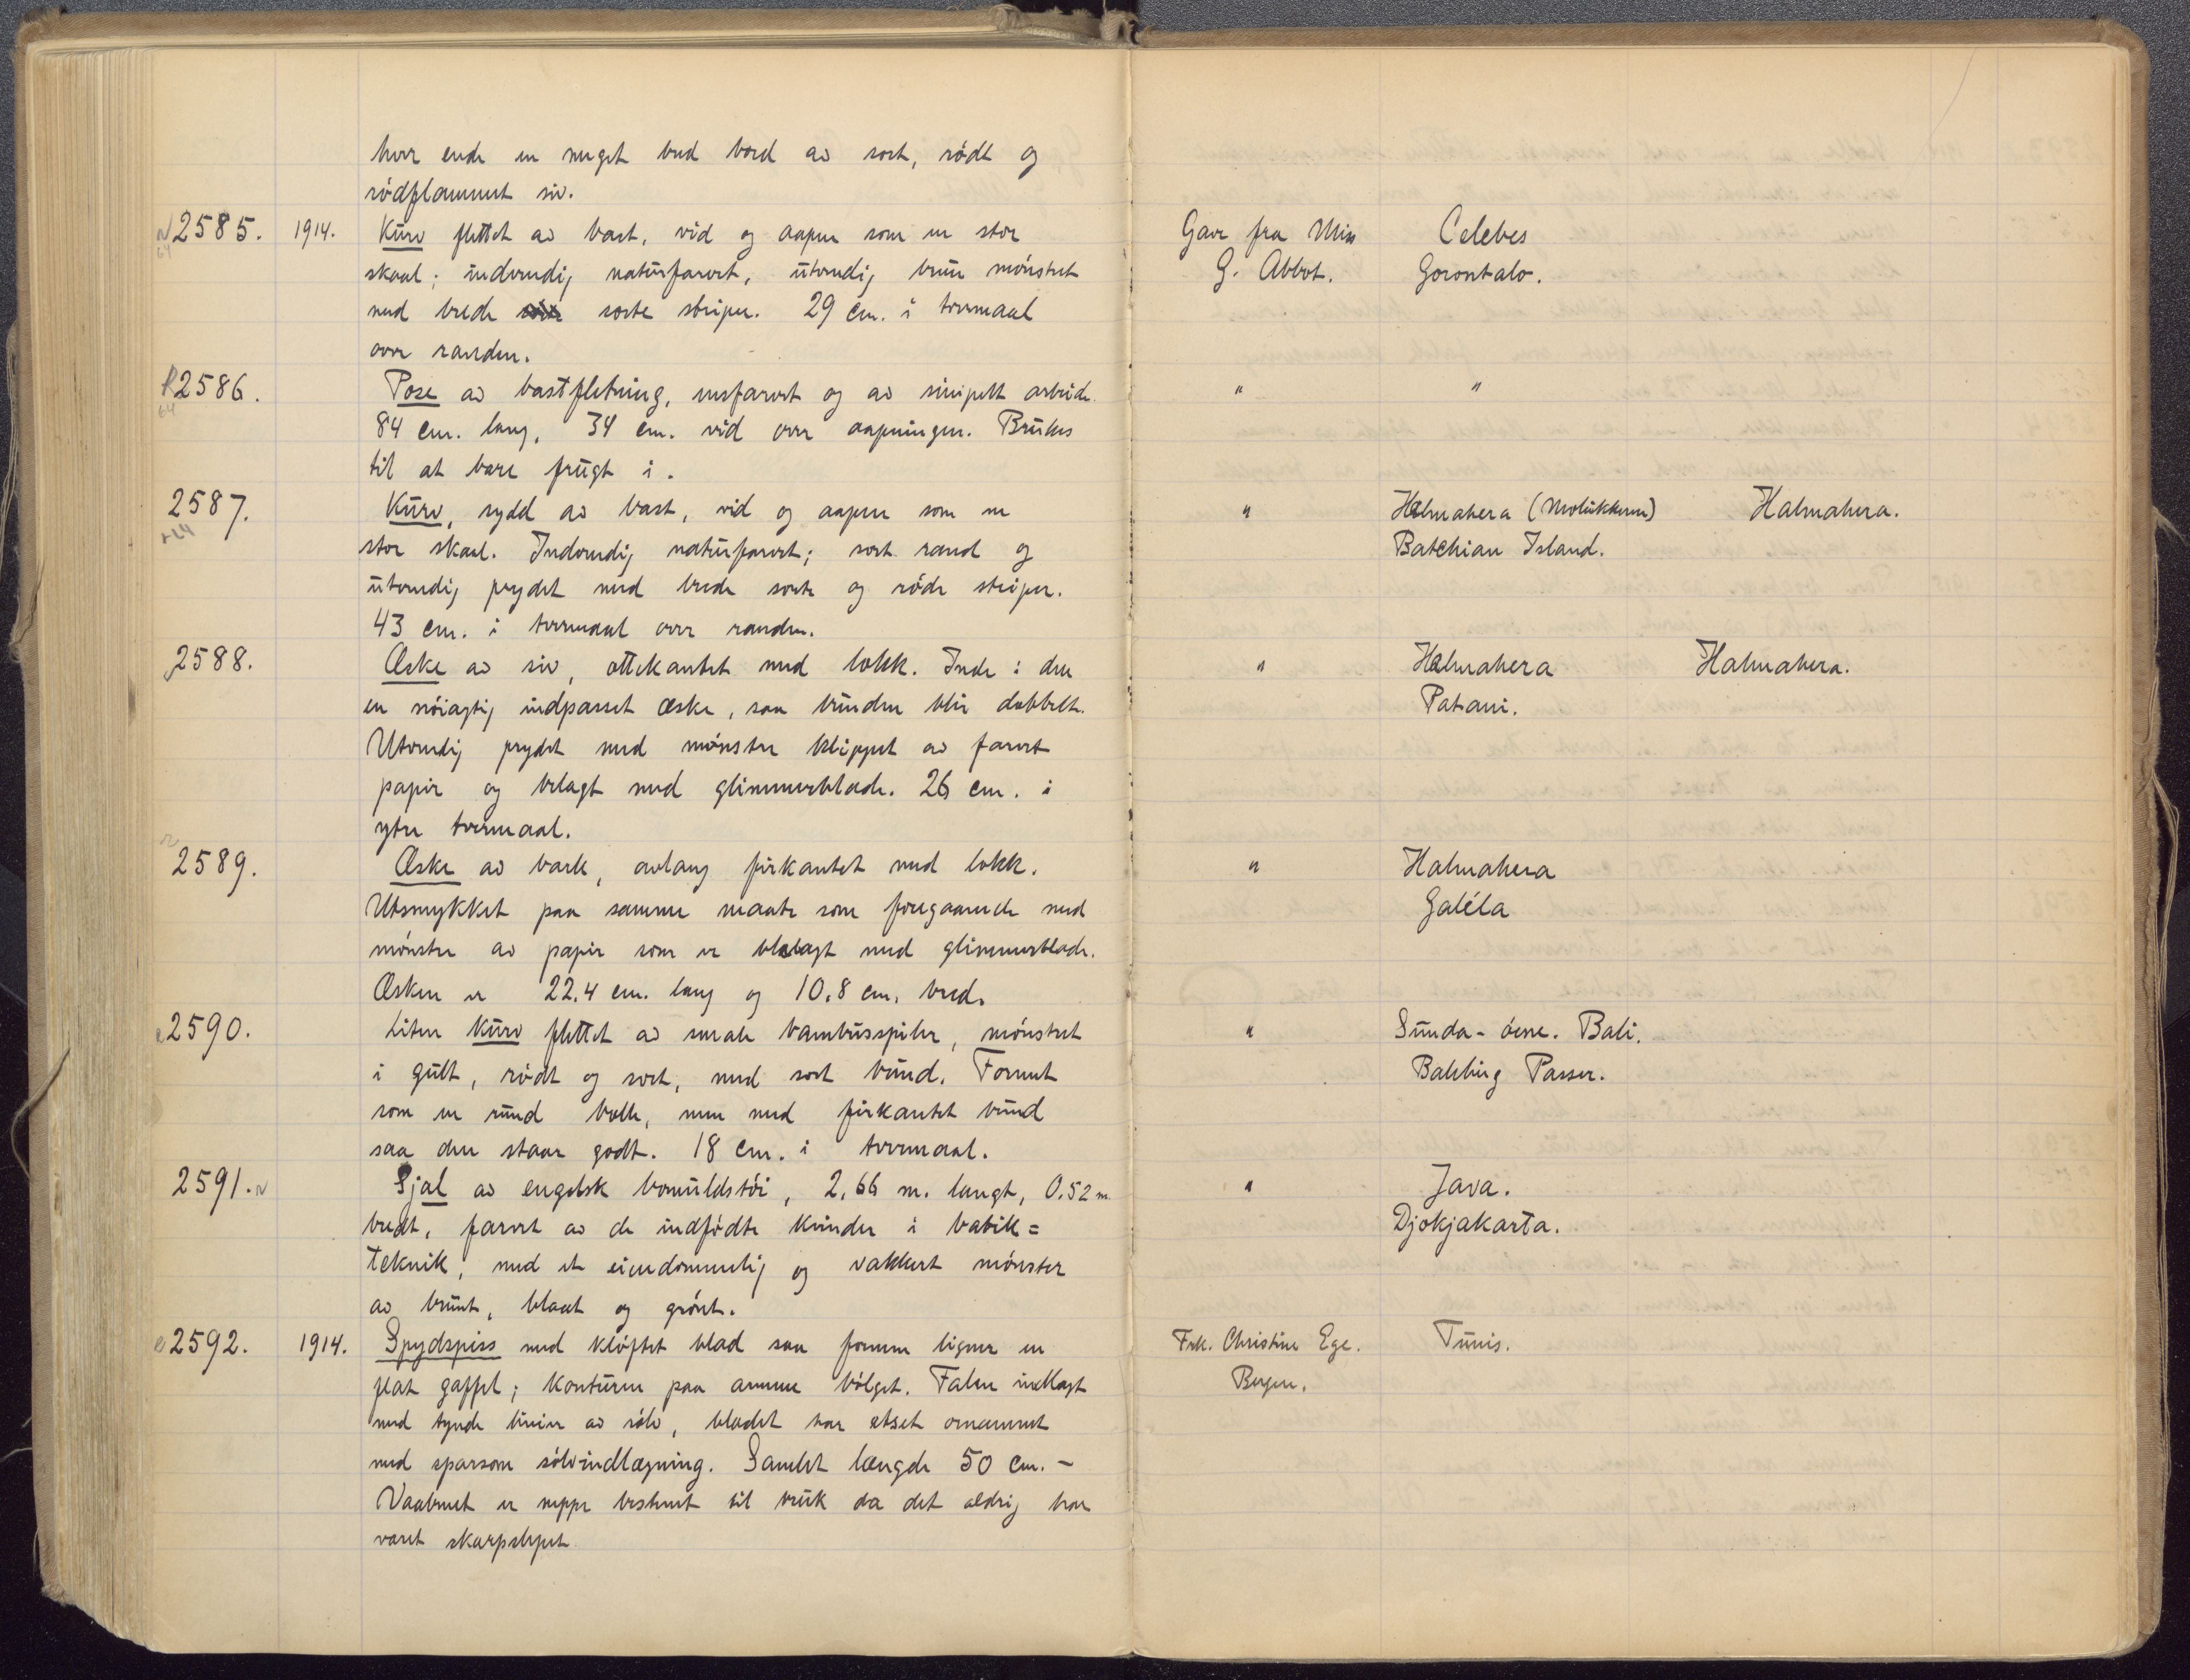 hver ende en meget bred bord av sort, rödt og
rödflammet siv.
2585. 1914. Kurv flettet av bast, vid og aapen som en stor Gave fra Miss Celebes
skaal; indvendig naturfarvet, utvendig brun mönstret G. Abbot. Gorontalo.
med brede sorte striper. 29 cm. i tvermaal
over randen.
2586. Pose av bastfletning, ensfarvet og av simpelt arbeide. " "
84 cm. lang, 34 cm. vid over aapningen. Brukes
til at bære frugt i.
2587. Kurv, sydd av bast, vid og aapen som en " Halmahera (Molukkerne) Halmahera.
stor skaal. Indvendig naturfarvet; sort rand og Batchian Island.
utvendig prydet med brede sorte og röde striper.
43 cm. i tvermaal over randen.
2588. Æske av siv, ottekantet med lokk. Inde i den " Halmahera Halmahera.
en nöiagtig indpasset æske, saa bunden blir dobbelt. Patani.
Utvendig prydet med mönster klippet av farvet
papir og belagt med glimmerblade. 26 cm. i
ytre tvermaal.
2589. Æske av bark, avlang firkantet med lokk. " Halmahera
Utsmykket paa samme maate som foregaaende med Galéla
mönster av papir som er belagt med glimmerblade.
Æsken er 22.4 cm. lang og 10.8 cm. bred.
2590. Liten kurv flettet av smale bambusspiler, mönstret " Sunda-öerne. Bali.
i gult, rödt og sort, med sort bund. Formet Passer.
som en rund bolle, men med firkantet bund
saa den staar godt. 18 cm. i tvermaal.
2591. Sjal av engelsk bomuldstöi, 2,66 m. langt, 0.52 m. " Java.
bredt, farvet av de indfödte kvinder i batik= Djokjakarta.
teknik, med et eiendommelig og vakkert mönster
av brunt, blaat og grönt.
2592. 1914. Spydspiss med klöftet blad saa formen ligner en Frk. Christine Ege. Tunis.
flat gaffel; konturen paa armene bölget. Falen indlagt Bergen.
med tynde linier av sölv, bladet har etset ornament
med sparsom sölvindlægning. Samlet længde 50 cm. -
Vaabnet er neppe bestemt til bruk da det aldrig har
været skarpslepet